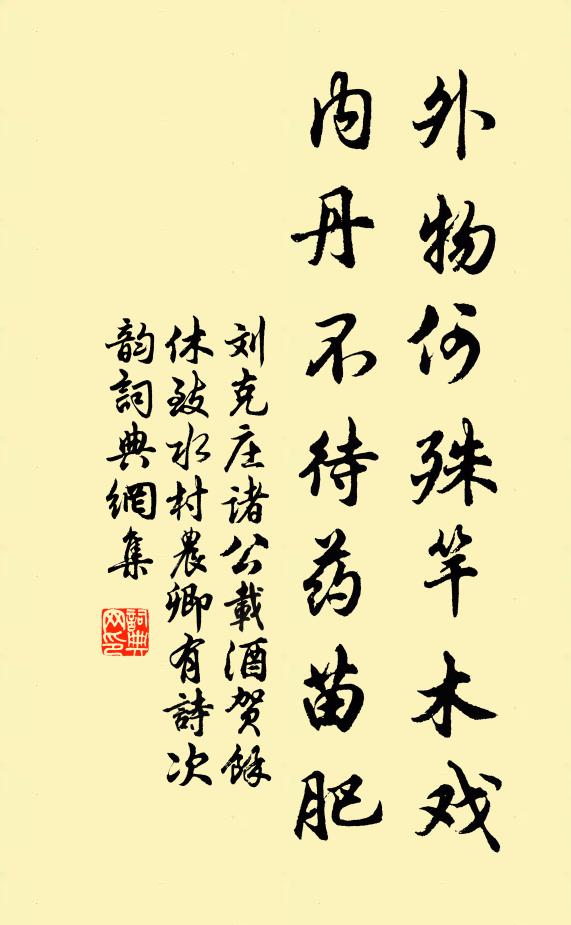 外物何殊竿木戏
内丹不待药苗肥
刘克庄诸公载酒贺馀
休致水村農卿有詩次
韵詞典網集
詞典
网印